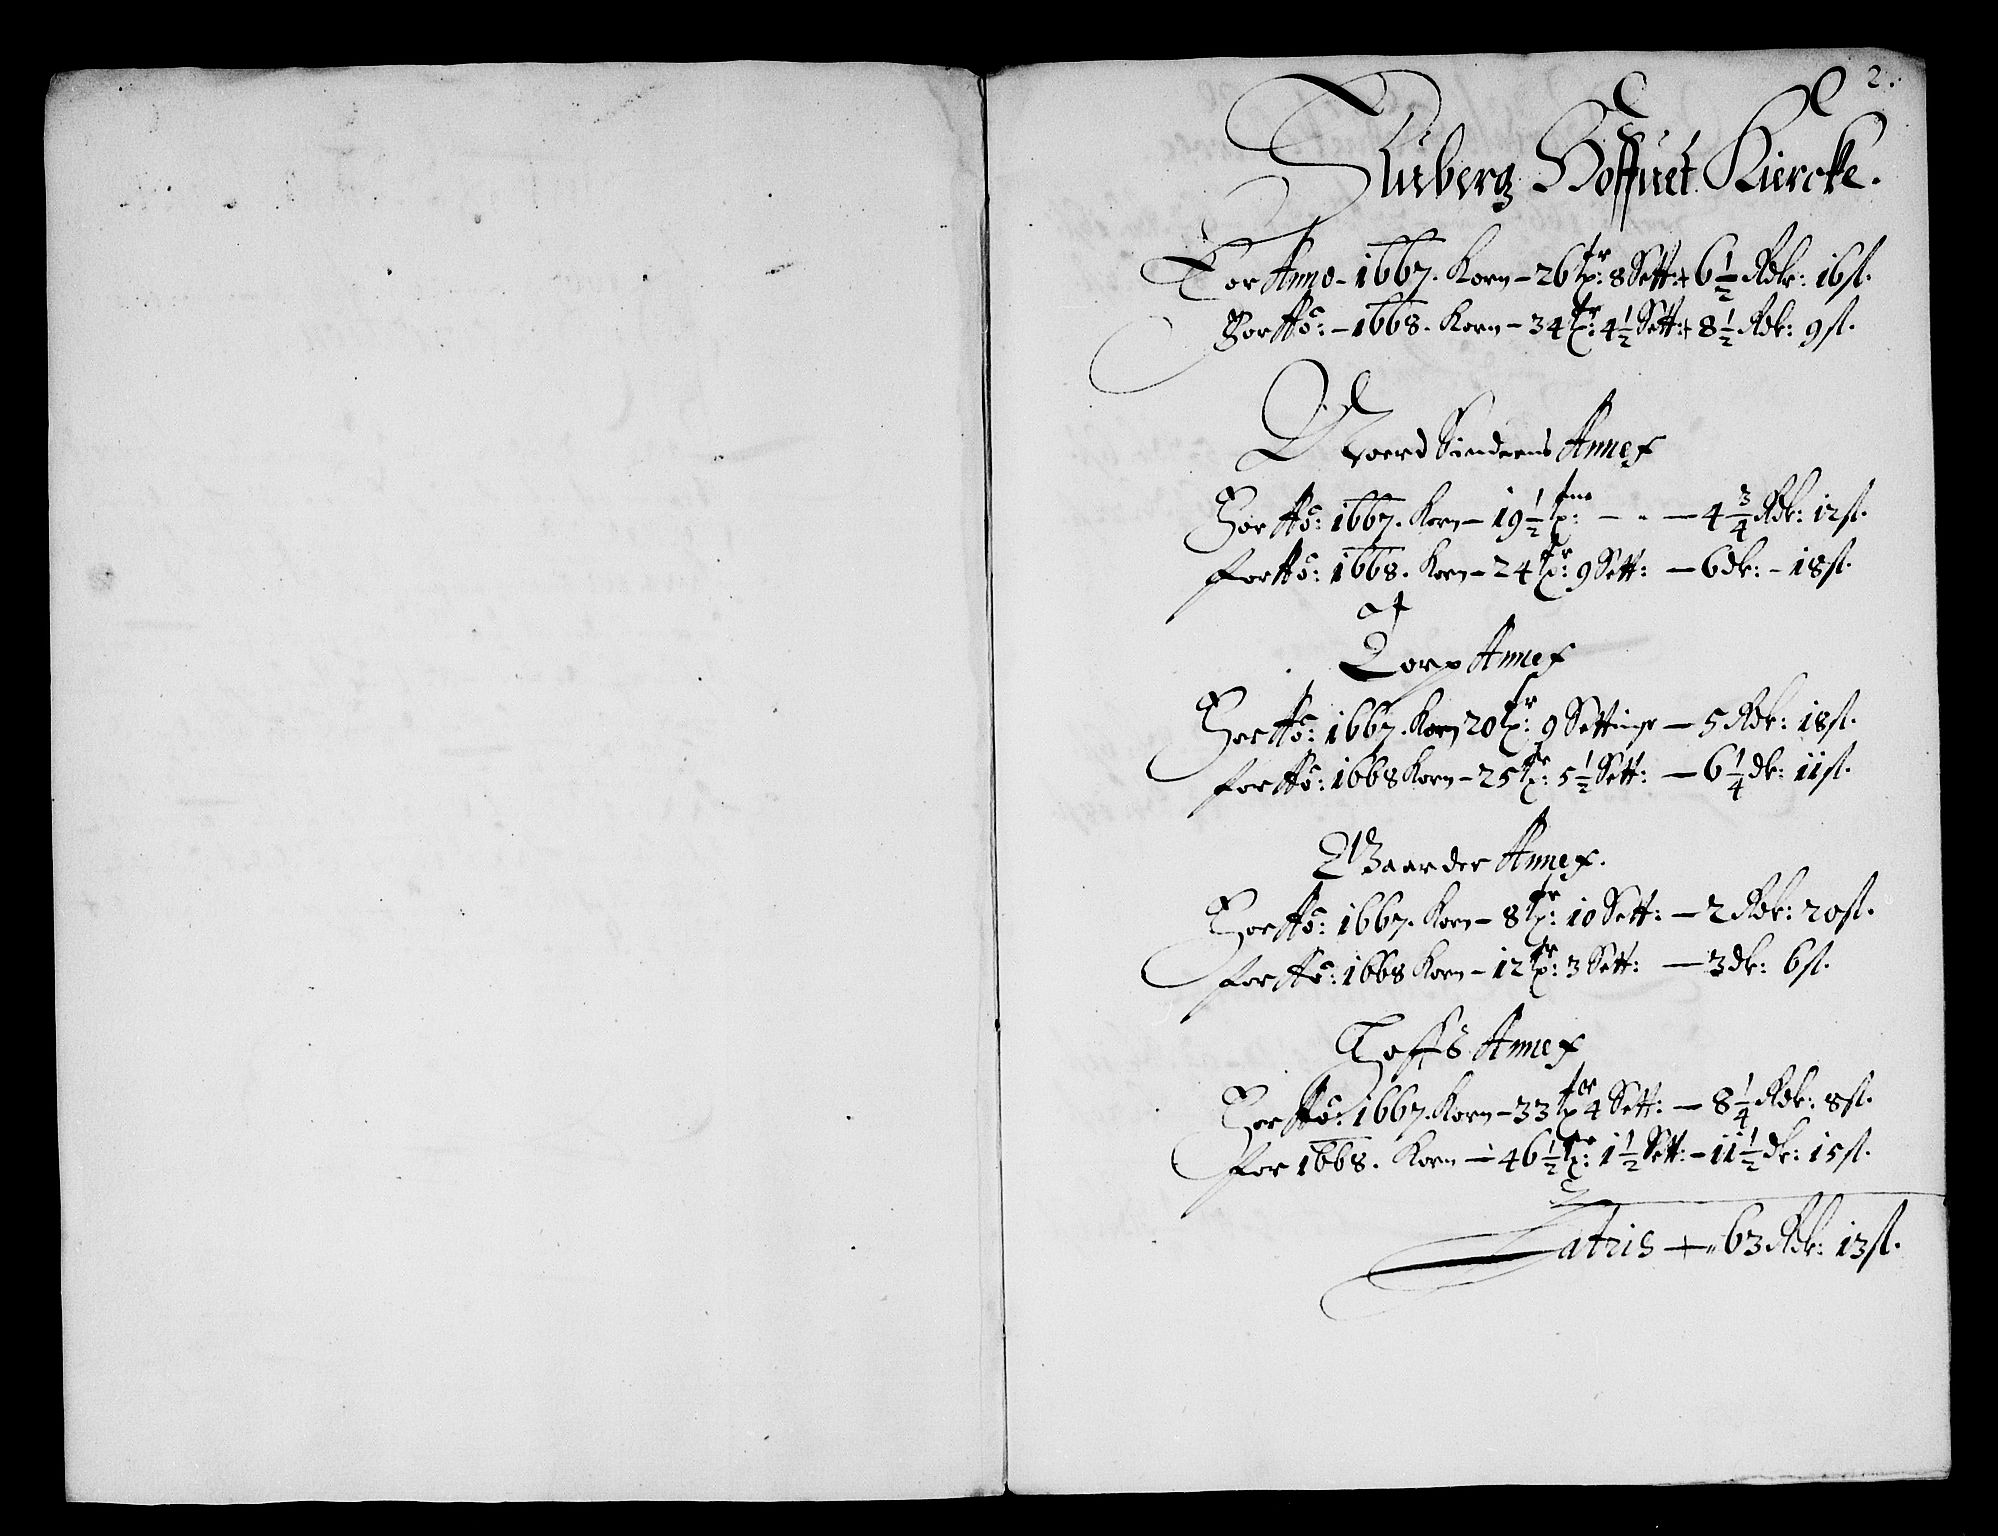 2.
Tuberg Hoffuet Kiercke.
For Anno - 1667. Korn - 26 tr: 8 Sett: + 6 1/2 Rdr: 16 ß.
For Aõ: - 1668. Korn - 34 tr: 4 1/2 Sett: + 8 1/2 Rdr: 9 ß.
Annex
For Aõ: 1667. Korn - 19 1/2 tne: - - 4 3/4 Rdr: 12 ß.
for Aõ: 1668. Korn - 24 tr: 9 Sett: - 6 dr: - 18 ß.
Torp Annex
For Aõ: 1667. Korn 20 tr: 9 Settinge - 5 Rdr: 18 ß.
for Aõ: 1668 Korn - 25 tr: 5 1/2 Sett: - 6 1/4 dr: 11 ß.
Waarder Annex.
For Aõ: 1667. Korn - 8 tr: 10 Sett: - 2 Rdr: 20 ß.
for Aõ: 1668 Korn - 12 tr: 3 Sett: - 3 dr: 6 ß.
Hoffs Annex
For Aõ: 1667. Korn - 33 tr 4 Sett: - 8 1/4 Rdr: 8 ß.
for 1668. Korn - 46 1/2 tr: 1 1/2 Sett: - 11 1/2 dr: 15 ß.
Latris - 63 Rdr: 13 ß.